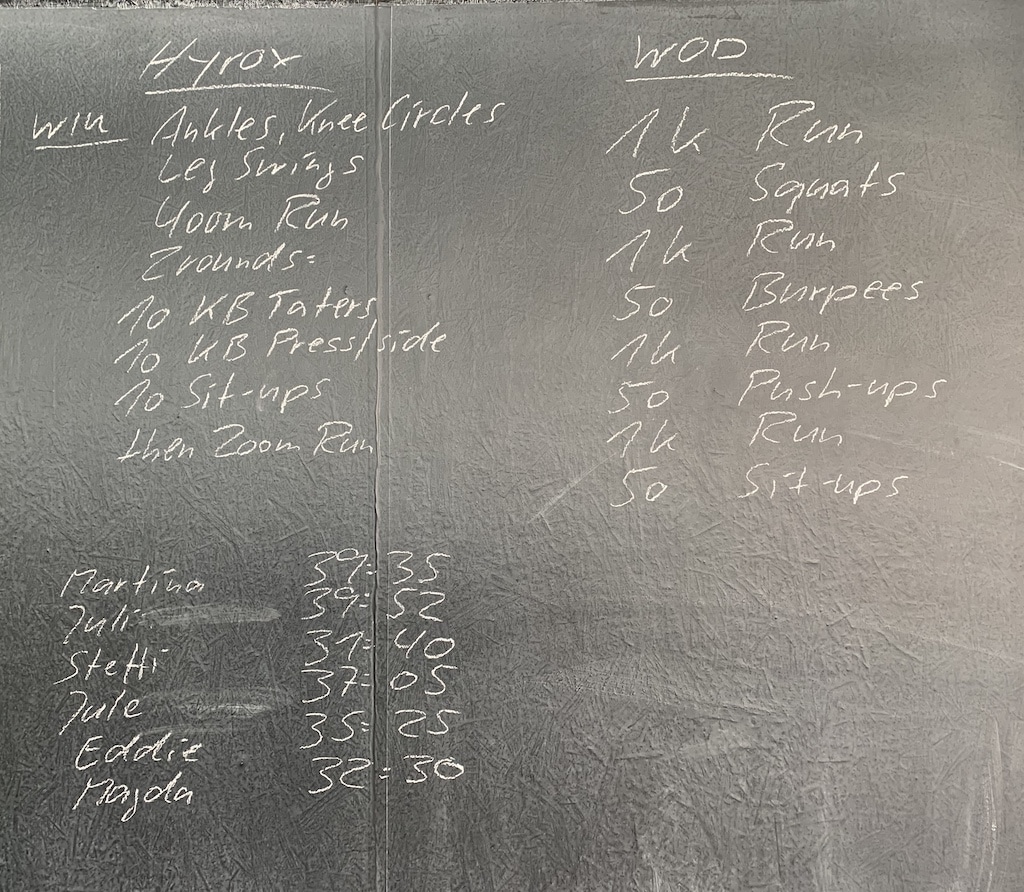 Hyrox
WIU Ankles, Knee Circles
Leg Swings
400m Run
2rounds:
10 KB Taters
10 KB Press/side
10 Sit-ups
then 200m Run
WOD
1k Run
50 Squats
1k Run
50 Burpees
1k Run
50 Push-ups
1k Run
50 Sit-ups
Martina 39:35
Juli 39:52
Steffi 31:40
Jule 37:05
Eddie 35:25
Magda 32:30